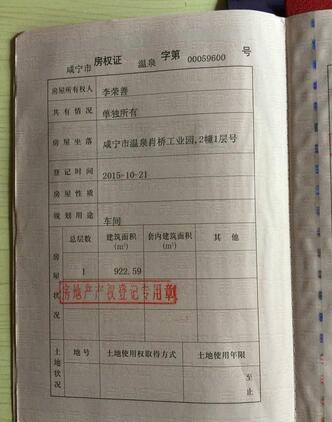 咸宁市 房权证 温泉 字第 00059600 号
房屋所有权人 李荣善
共有情况 单独所有
房屋坐落 咸宁市温泉肖桥工业园,2幢1层号
登记时间 2015-10-21
房屋性质
规划用途 车间
房屋状况
总层数 建筑面积(m²) 套内建筑面积(m²) 其他
1 922.59
房地产产权登记专用章
土地状况
地号 土地使用权取得方式 土地使用年限
至
止